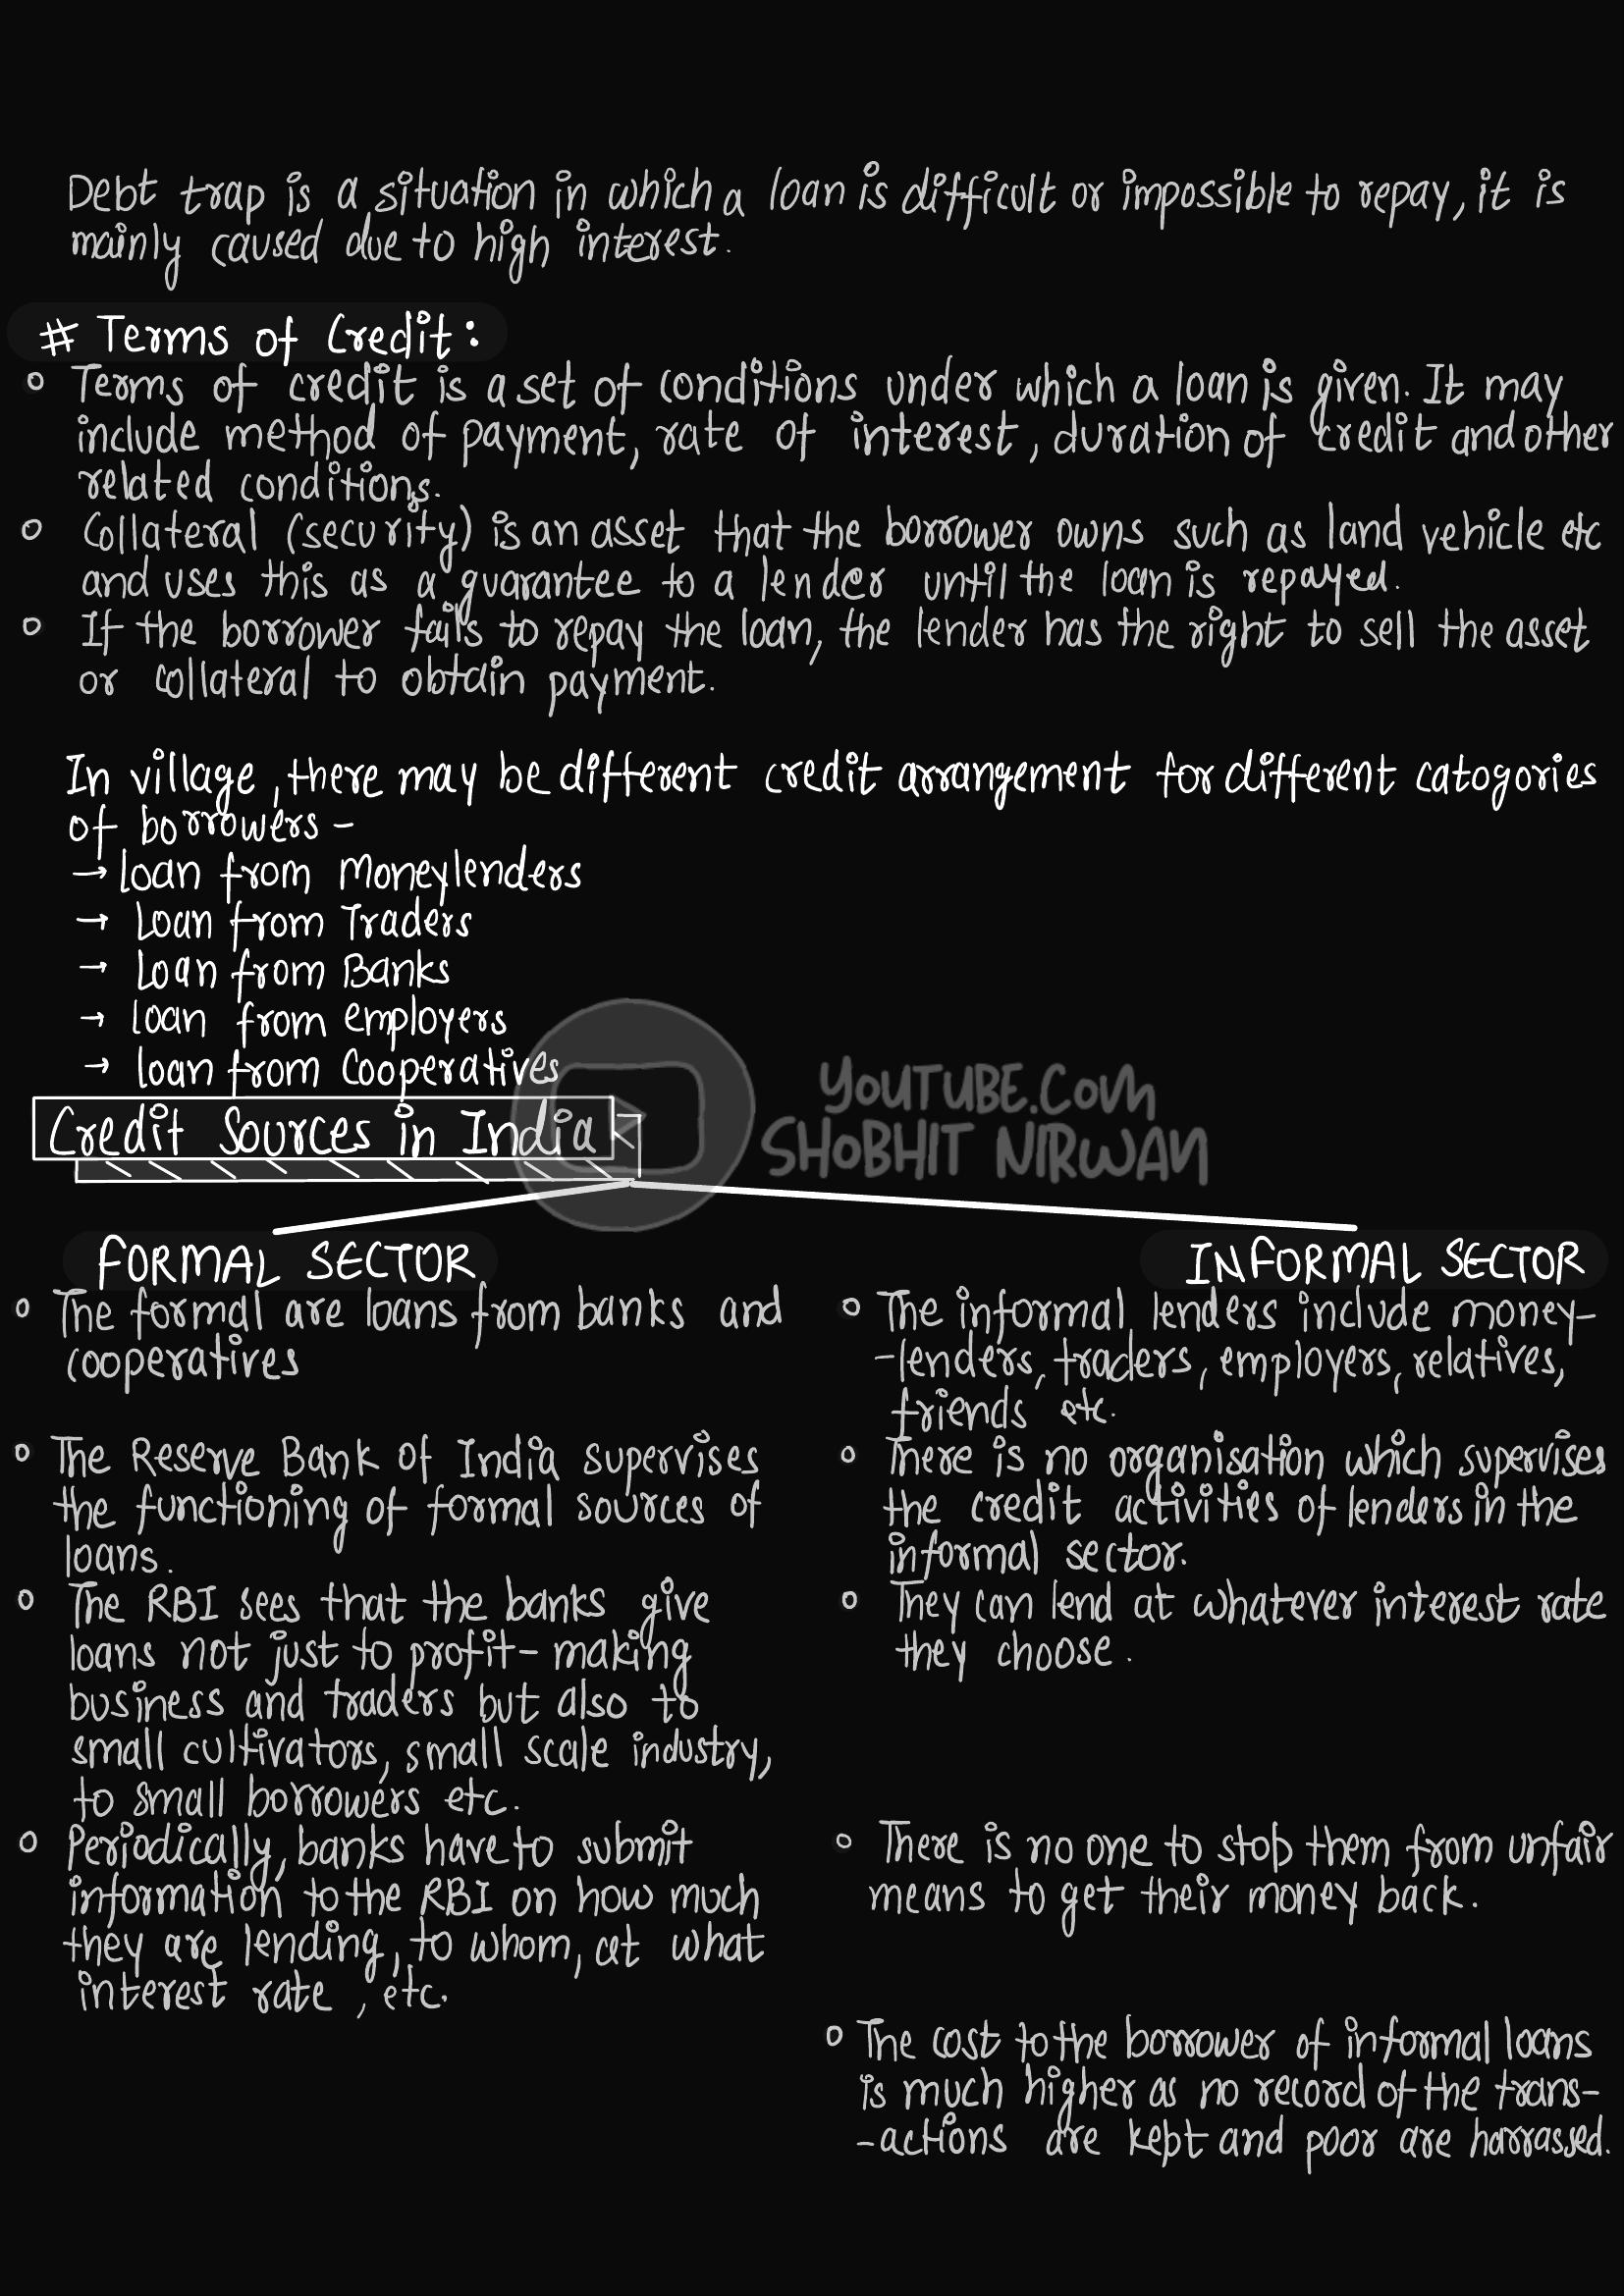 Debt trap is a situation in which a loan is difficult or impossible to repay, it is
mainly caused due to high interest.
# Terms of Credit:
o Terms of credit is a set of conditions under which a loan is given. It may
include method of payment, rate of interest, duration of credit and other
related conditions.
o Collateral (security) is an asset that the borrower owns such as land vehicle etc
and uses this as a guarantee to a lender until the loan is repayed.
o If the borrower fails to repay the loan, the lender has the right to sell the asset
or collateral to obtain payment.
In village, there may be different credit arrangement for different catogories
of borrowers -
→ Loan from Moneylenders
→ Loan from Traders
→ Loan from Banks
→ Loan from employers
→ Loan from Cooperatives
YOUTUBE.COM
SHOBHIT NIRWAN
Credit Sources in India
FORMAL SECTOR
o The formal are loans from banks and
cooperatives
o The Reserve Bank of India supervises
the functioning of formal sources of
loans.
o The RBI sees that the banks give
loans not just to profit-making
business and traders but also to
small cultivators, small scale industry,
to small borrowers etc.
o Periodically, banks have to submit
information to the RBI on how much
they are lending, to whom, at what
interest rate, etc.
INFORMAL SECTOR
o The informal lenders include money-
-lenders, traders, employers, relatives,
friends etc.
o There is no organisation which supervises
the credit activities of lenders in the
informal sector.
o They can lend at whatever interest rate
they choose.
o There is no one to stop them from unfair
means to get their money back.
o The cost to the borrower of informal loans
is much higher as no record of the trans-
-actions are kept and poor are harrassed.